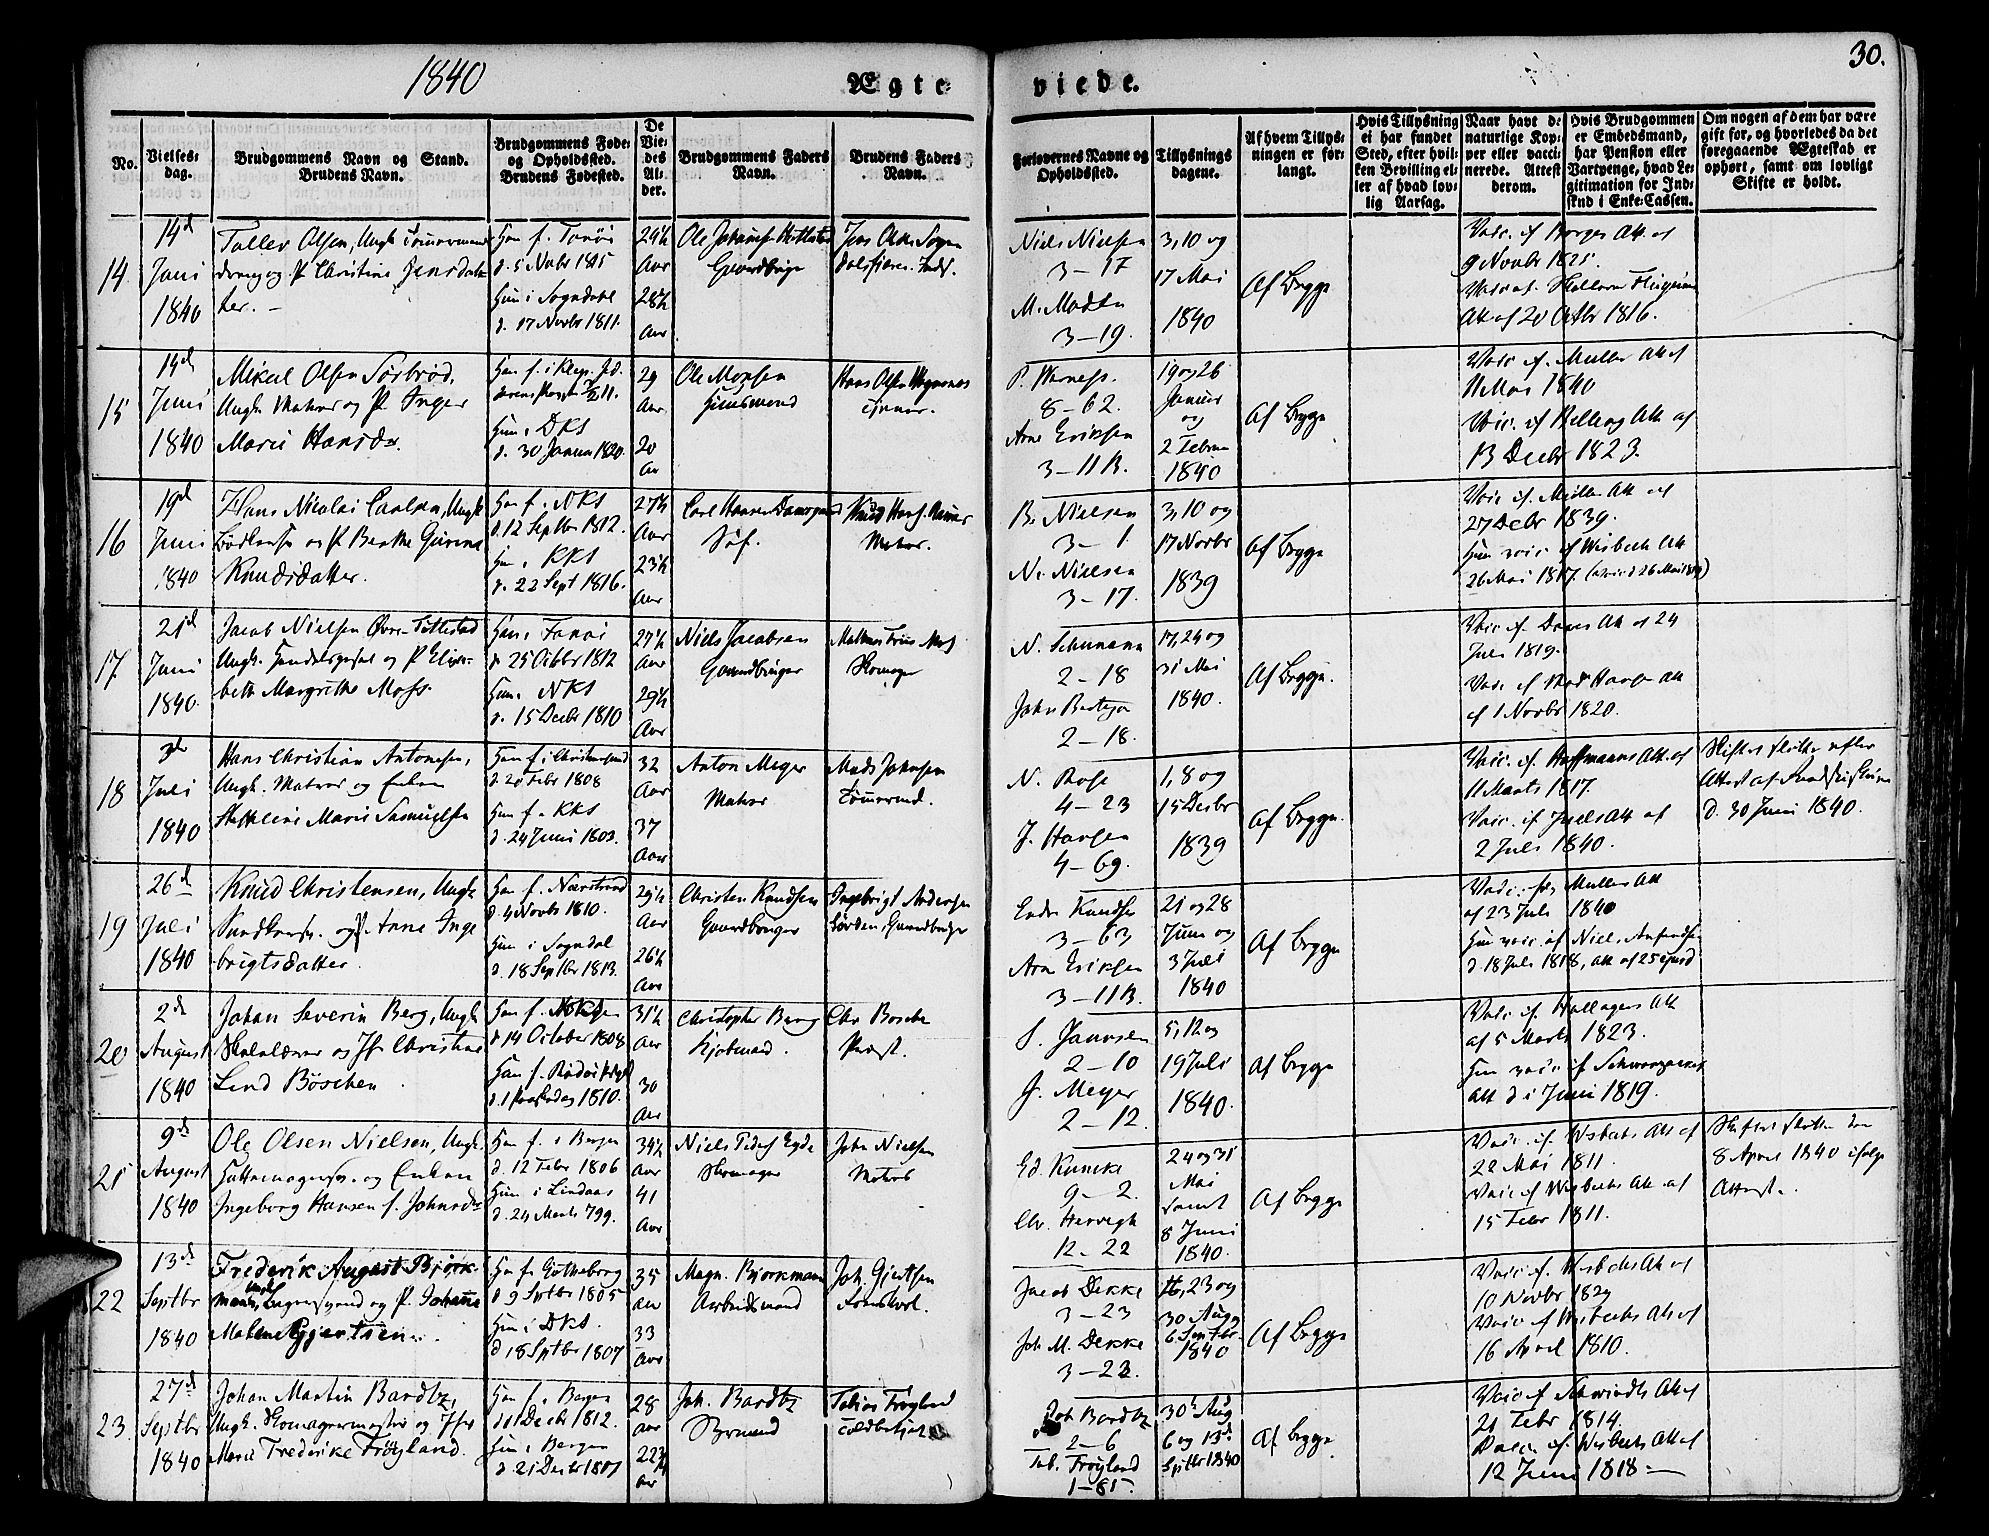 1840
Ægte
viede.
30.
No.
Vielses-
dag.
Brudgommens Navn og Stand.
Brudens Navn.
Brudgommens Føde-
og Opholdssted.
Brudens Fødested.
De
Vie-
des
Al-
der.
Brudgommens Faders
Navn.
Brudens Faders
Navn.
Forlovernes Navne og
Opholdssted.
Tillysnings
dagene.
Af hvem Tillys-
ningen er for-
langt.
Hvis Tillysning
ei har fundet
Sted, efter hvil-
ken Bevilling el-
ler af hvad lov-
lig Aarsag.
Naar havt de
naturlige Kop-
per eller vacci-
nerede. Attest
derom.
Hvis Brudgommen
er Embedsmand,
har Pension eller
Vartpenge, hvad Le-
gitimation for Ind-
skud i Enke-Cassen.
Om nogen af dem har være
gift før, og hvorledes da det
foregaaende Ægteskab er
ophørt, samt om lovligt
Skifte er holdt.
14
14d
Juni
1840
Toller Olsen, Ungk.
dreng og P. Christine Jensdat-
ter. -
Han f. Fanöi
d. 5 Novbr 1815
Hun i Sogndahl
d. 17 Novbr 1811.
24½
Aar
28½
Aar
Ole
Gaardbruger
Jens Olsen Sogn
Niels Nielsen
3-17
M. Madsen
3-19.
3, 10 og
17 Mai
1840
Af Begge
Vacc. af Att. af
9 Novbr 1825.
Att af 20 Octbr 1816.
15
14de
Juni
1840
Mikal Olsen Sörbröd,
Ungk. Matros og P. Inger
Marie Hansdr.
Hun i DKS
d. 30 Januar 1820.
29
Aar.
20
Aar
Ole Monsen
Huusmand
Hans Olsen
8-62.
Arne Eriksen
3-11B.
19 og 26
Januar
og
2 Februar
1840
Af Begge
Vacc. af Müller Att af
11 Mai 1840
Vacc. af Att af
13 Decbr 1823.
16
19de
Juni
1840
Hans Nicolai Carlsen, Ungk
og P. Berthe Gurine
Knudsdatter.
Han f. NKS
d. 12 Septbr 1812.
Hun i KKS
d. 22 Sept 1816.
27½
Aar
23½
Aar
Carl Hansen
Knud Hans.
Matros.
B. Nielsen
3-1
N. Nielsen
3-17.
3, 10 og
17 Novbr
1839
Af Begge
Vacc. af Müller Att af
27 Decbr 1839.
Hun vacc. af Wisbech Att
26 Mai 1817.
17
21d
Juni
1840.
Jacob Nielsen Övre-Tittestad
Ungk. og P. Elisa-
beth Margrethe Moss.
Han i Fanöi
d. 25 Octbr 1812
Hun i NKS
d. 15 Decbr 1810
27½
Aar
29½
Aar
Niels Jacobsen
Gaardbruger
Skomager
N. Schumann
2-18
John
2-18.
17, 24 og
31 Mai
1840.
Af Begge.
Vacc. af Att af 24
Juli 1819.
Vacc. af Att
af 1 Novbr 1820.
18
3de
Juli
1840
Hans Christian Antonesen,
Ungk. Matros og Enken
Marie Samuelsen
Han f. i Christiansund
d. 20 Febr 1808
Hun f. KKS
d. 24 Juni 1803.
32
Aar
37
Aar
Anton Meyer
Matros
Mads Johnsen
Tömmermd.
N. Rose
4-23
J. Hansen
4-69.
1, 8 og
15 Decbr
1839
Af Begge.
Vacc. af Hoffmanns Att. af
11 Marts 1817.
Vacc. af Juels Att af
2 Juli 1840.
Skiftet sluttet efter
Attest af
d. 30 Juni 1840.
19
26d
Juli
1840
Knud Christensen, Ungk
og P. Anne Inge
brigtsdatter.
Han f. Nærstrand
d. 4 Novbr 1810.
Hun i Sogndal
d. 18 Septbr 1813.
29½
Aar
26½
Aar
Christen Knudsen
Gaardbruger
Ingebrigt Andersen
Gaardbruger
Endre Knudsen
3-63
Arne Eriksen
3-11B.
21 og 28
Juni og
3 Juli
1840
Af Begge
Vacc. Müllers Att
af 23 Juli 1840
Hun vacc. af Niels
d. 18 Juli 1818, Att. af 25
20
2de
August
1840
Johan Severin Berg, Ungk
Skolelærer og Jfr Christine
Lend Böschen
d 14 October 1808
1810.
31½
Aar
30
Aar
Christopher Berg
Kjöbmand.
Chr Böschen
Præst.
S. Jansen
2-10
J. Meyer
2-12.
5, 12 og
19 Juli
1840.
Af Begge
Vacc. af Hallagers Att
af 5 Marts 1823.
Hun vacc. af
Att d 1 Juni 1819.
21
9de
August
1840
Ole Olsen Nielsen, Ungk.
Hattemagersv. og Enken
Ingeborg Hansen f. Johnsdr
Han f. i Bergen
d. 12 Febr 1806
Hun i Lindaas
d. 24 Marts 799.
34½
Aar
41
Aar
Niels Peders Eyde
Skomager
John Nielsen
Matros
Ed. Kuneke
9-2.
Chr. Herwegh
12-22
24 og 31
Mai
samt
8 Juni
1840.
Af Begge
Vacc. af. Wisbechs Att af
22 Mai 1811.
Vacc. af Wisbechs Att. af
15 Febr 1811.
Skiftet sluttet den
8 April 1840 ifölge
Attest.
22
13de
Septbr
1840
Frederik August Björk-
mann, Ungk. og P. Johanna
Malene Gjertsen.
Han f. Gotheborg
d 9 Septbr 1805
Hun i DKS.
d 18 Septbr 1807
35
Aar
33
Aar
Magn. Bjorkmann
Arbeidsmand
Joh. Gjertsen
Jacob Dekke
3-23
Joh. M. Dekke
3-22.
16, 23 og
30 Aug
6 Septbr
1840
Af Begge
Vacc. af. Wisbechs Att af
10 Novbr 1829
Vacc. af Wisbechs Att. af
16 April 1810.
23
27de
Septbr
1840
Johan Martin Bardtz,
Ungk. Skomagermester og Jfr
Marie Frederikke Fröyland.
Han f. i Bergen
d 11 Decbr 1812.
Hun i Bergen
d. 21 Decbr 1817
28
Aar
22¾
Aar
Joh. Bardtz
Tobias Fröyland
Toldbetjent
Joh Bardtz
2-6
Tob. Fröyland
1-85.
30 Aug
6 og 13de
Septbr 1840
Af Begge
Vacc. af Schwindts Att af
21 Febr 1814.
Vacc. af. Wisbechs Att af
12 Juni 1818 -